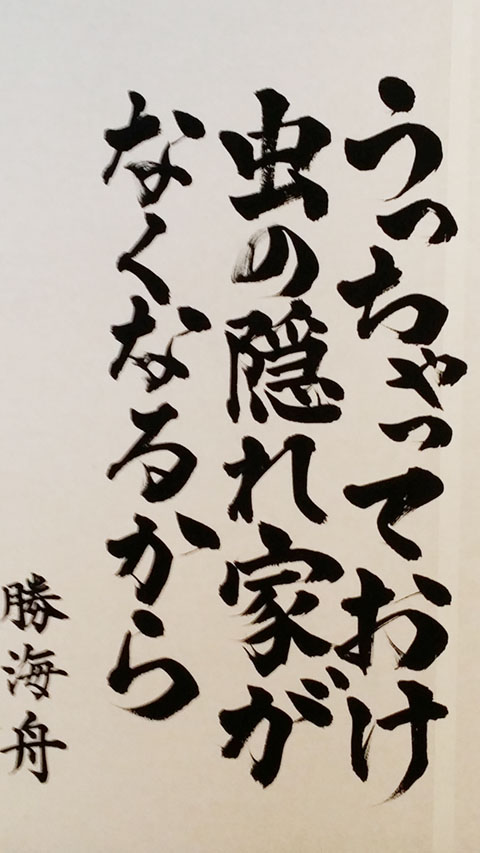 うっちゃっておけ
虫の隠れ家が
なくなるから
勝海舟